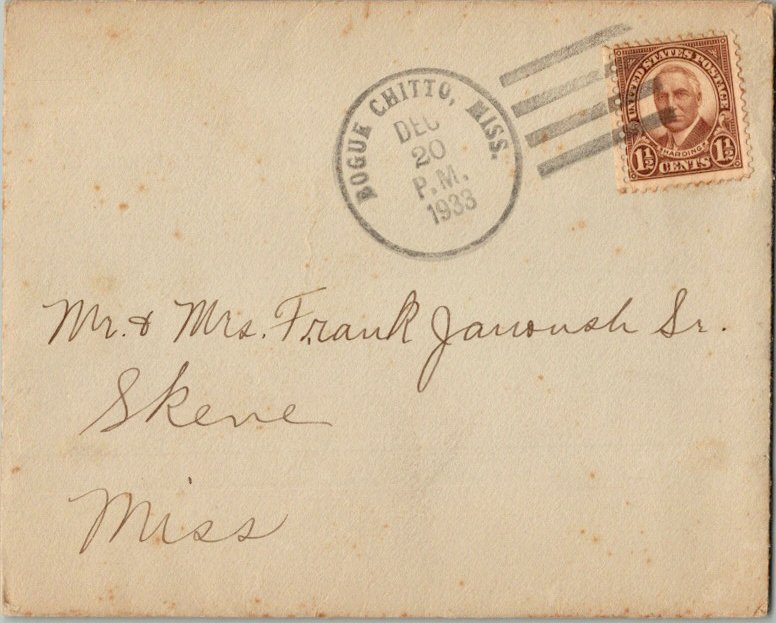 BOGUE CHITTO, MISS.
DEC
20
P.M.
1933
UNITED STATES POSTAGE
HARDING
1½ CENTS 1½
Mr. & Mrs. Frank Janoush Sr.
Skene
Miss